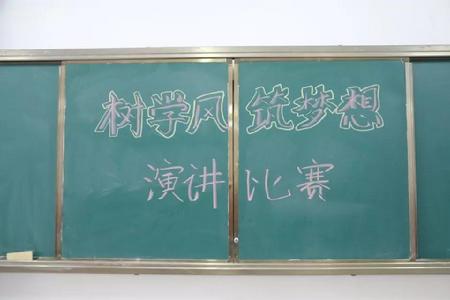 树学风 筑梦想
演讲比赛